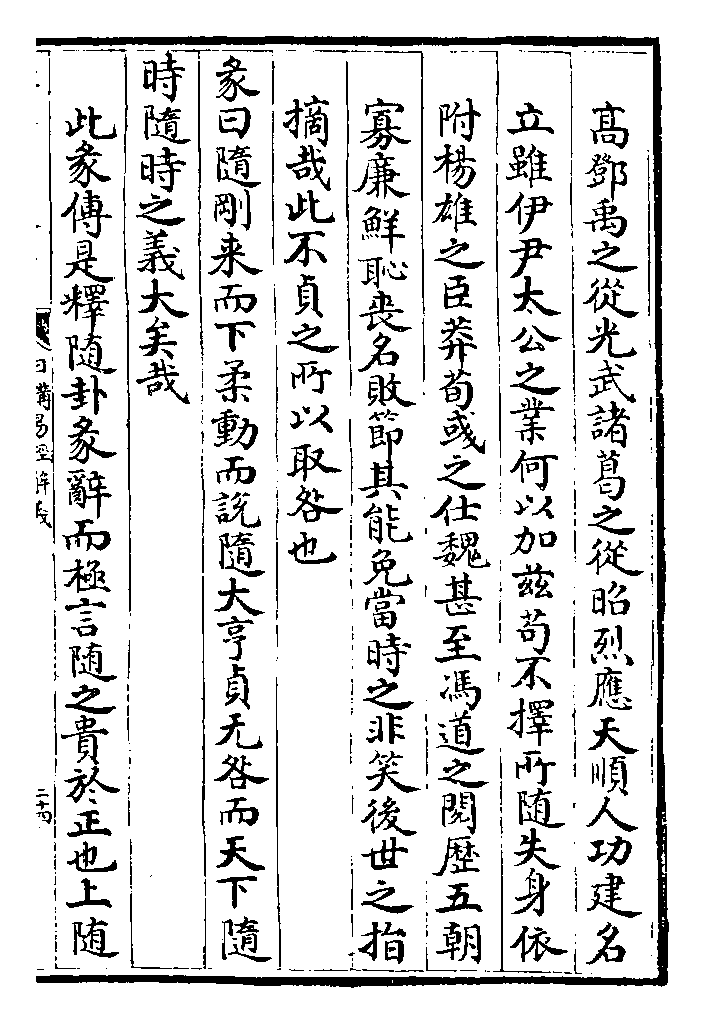 高鄧禹之從光武諸葛之從昭烈應天順人功建名
立雖伊尹太公之業何以加兹苟不擇所随失身依
附楊雄之臣莽荀彧之仕魏甚至馮道之閱歴五朝
寡廉鮮恥丧名敗節其能免當時之非笑後世之指
摘哉此不貞之所以取咎也
彖曰隨剛来而下柔動而說隨大亨貞无咎而天下隨
時隨時之義大矣哉
此彖傳是釋随卦彖辭而極言随之貴於正也上随
日講易經解義
二十四